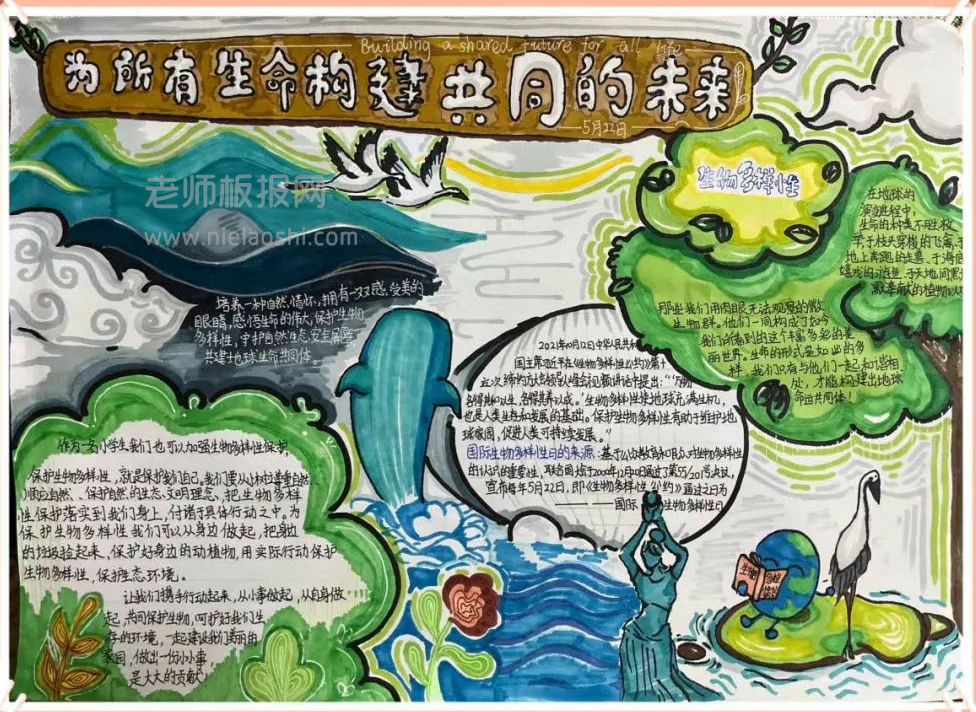 Building a shared future for all life
为所有生命构建共同的未来
5月22日
老师板报网
www.nielaoshi.com
生物多样性
在地球的
演变进程中,
生命的种类不胜枚
于枝头穿梭的飞禽,于
地上奔跑的走兽、于海底
嬉戏的游鱼、于天地间默
默奉献的植物以及
那些我们用肉眼无法观察的微
生物群。他们一同构成了如今
我们所看到的这个丰富多彩的美
丽世界。生命的形式是如此的多
样,我们只有与他们一起,和谐相
处,才能构建出地球
命运共同体!
培养一种自然情怀,拥有一双感受美的
眼睛,感悟生命的伟大,保护生物
多样性,守护自然生态安全屏障,
共建地球生命共同体。
2021年10月12日中华人民共和
国主席习近平在《生物多样性公约》第十
五次缔约方大会领导人峰会视频讲话中提出:“‘万物
各得其和以生,各得其养以成。’生物多样性使地球充满生机,
也是人类生存和发展的基础。保护生物多样性有助于维护地
球家园,促进人类可持续发展。”
国际生物多样性日的来源:基于公众教育和日众对生物多样性
的认识的重要性,联合国于2000年12月20日通过了第55/201号决议,
宣布每年5月22日,即《生物多样性公约》通过之日为
国际生物多样性日
作为一名小学生我们也可以加强生物多样性保护。
保护生物多样性,就是保护我们自己。我们要从小树立尊重自然、
顺应自然、保护自然的生态文明理念,把生物多样
性保护落实到我们身上,付诸于具体行动之中。为
保护生物多样性我们可以从身边做起,把身边
的垃圾捡起来、保护好身边的动植物,用实际行动保护
生物多样性、保护生态环境。
让我们携手行动起来,从小事做起,从自身做
起,共同保护生物,呵护好我们生
存的环境,一起建设我们美丽的
家园,做出一份小小事,
是大大的贡献!
生物
多样性